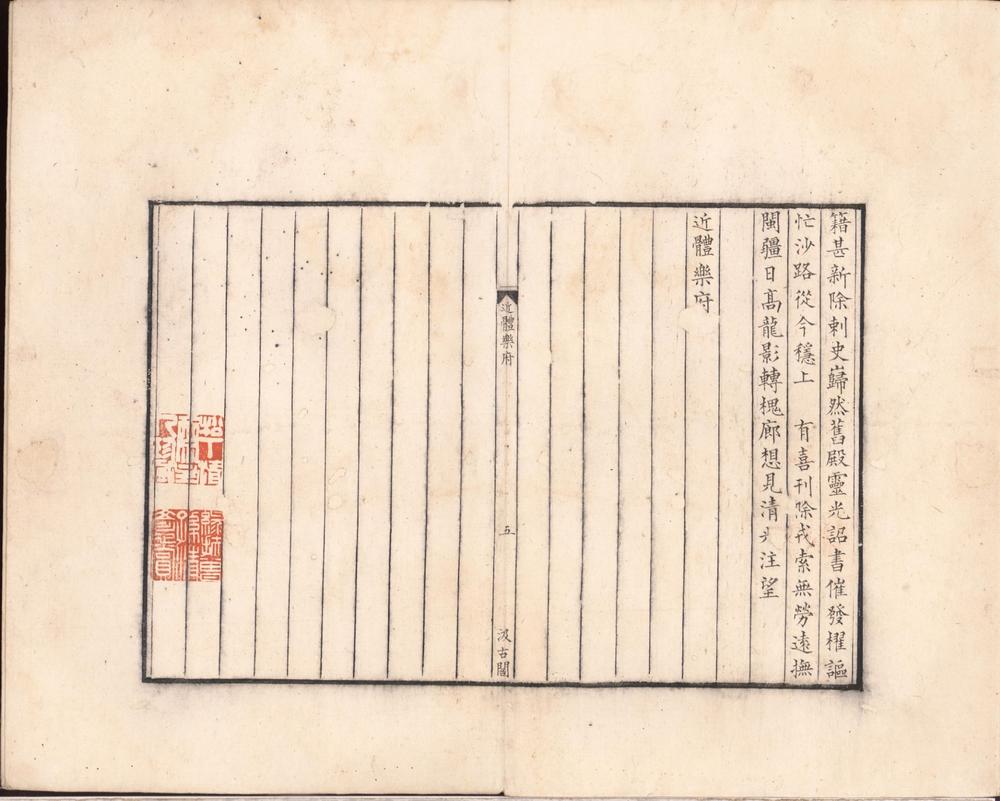 籍甚新除刺史巋然舊殿靈光詔書催發櫂謳
忙沙路從今穩上　有喜刊除戎索無勞遠撫
閩疆日髙龍影轉槐廊想見清注望
近體樂府
近體樂府
五
汲古閣